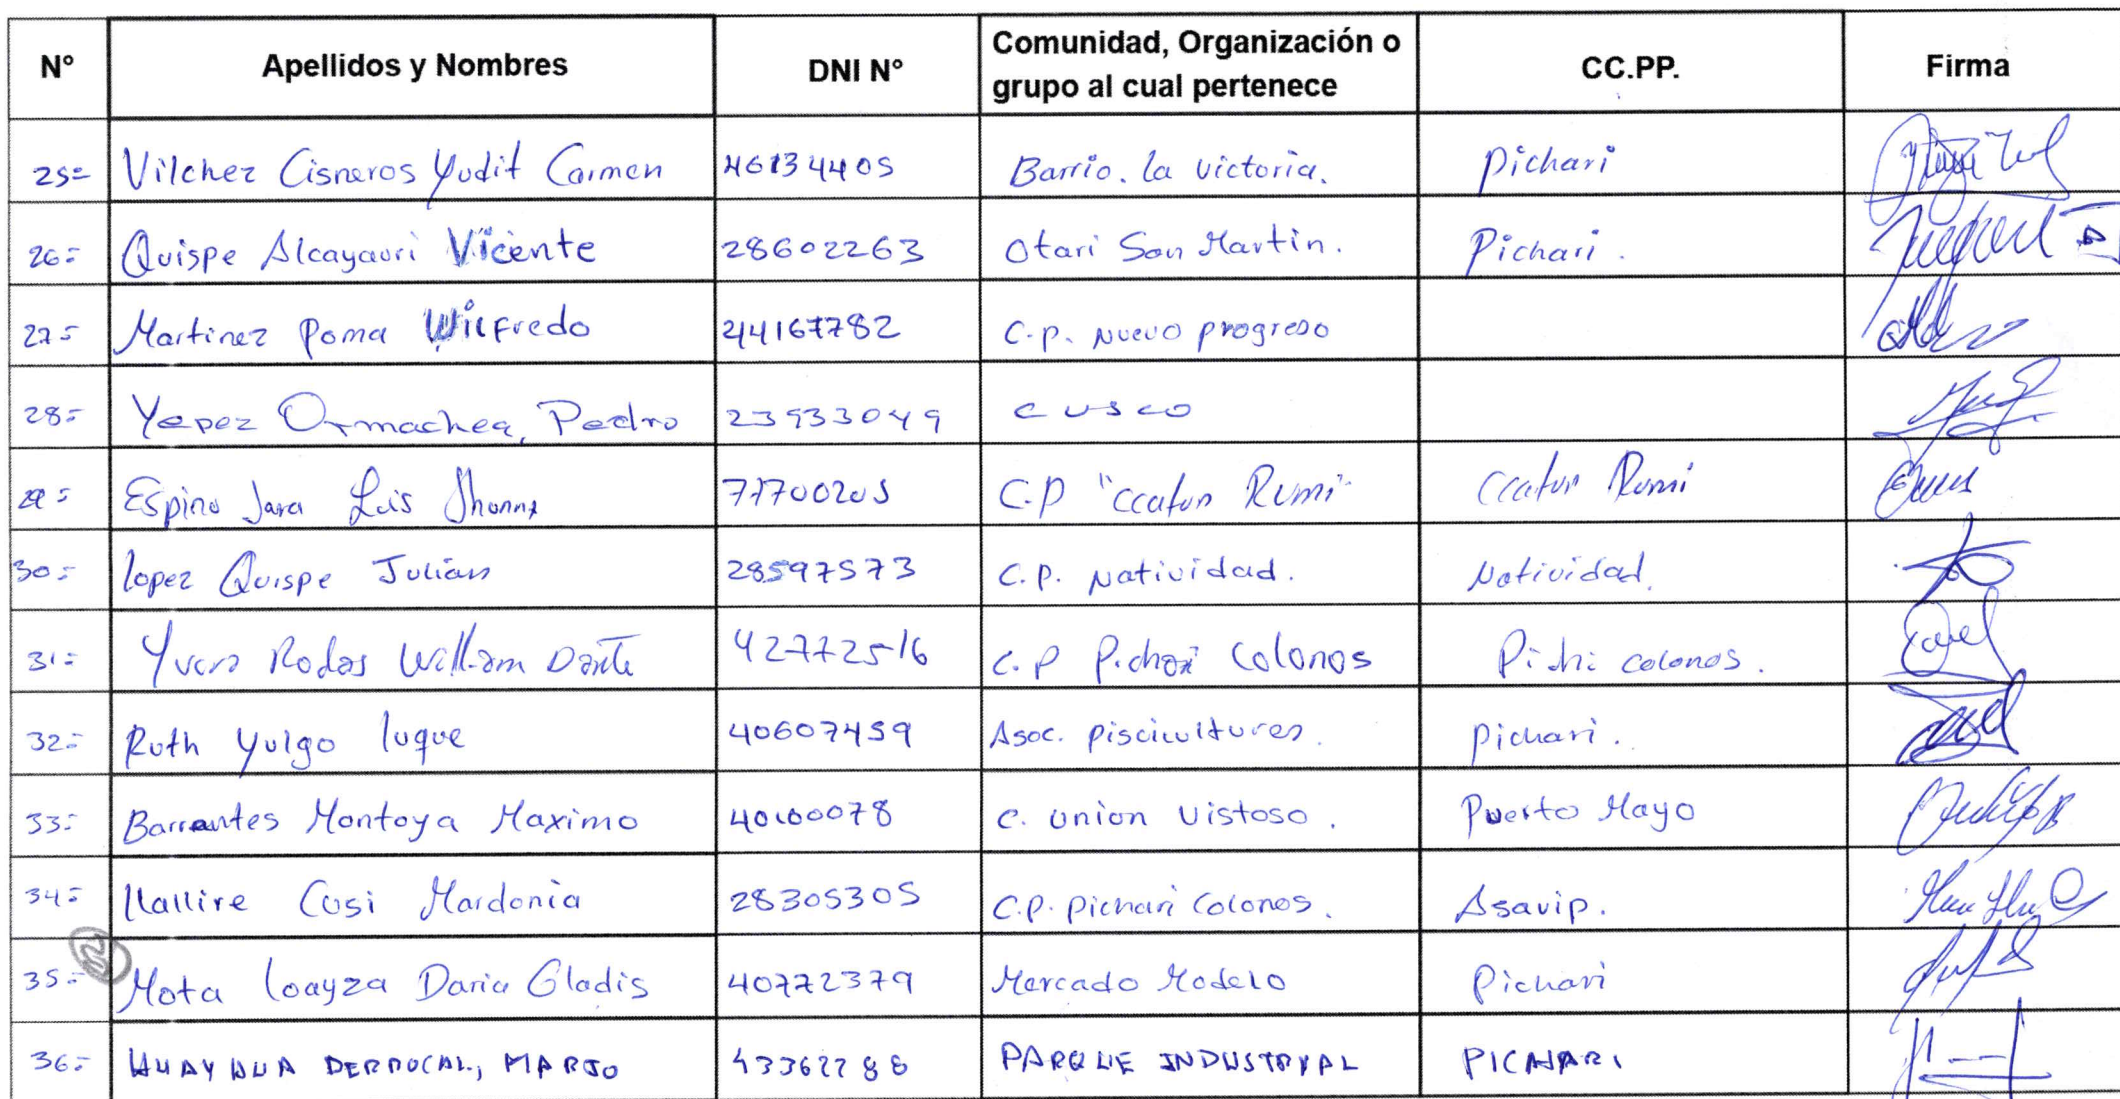 N° Apellidos y Nombres DNI N° Comunidad, Organización o grupo al cual pertenece CC.PP. Firma
25= Vilchez Cisneros Yudit Carmen 46134405 Barrio. la victoria. Pichari
26= Quispe Alcayauri Vicente 28602263 Otari San Martin. Pichari.
27= Martinez Poma Wilfredo 44167782 C.P. Nuevo progreso
28= Yepez Ormachea, Pedro 23933049 cusco
29= Espino Jara Luis Jhonny 77700205 C.P "Ccatun Rumi" Ccatun Rumi
30= lopez Quispe Julian 28597573 C.P. Natividad. Natividad.
31= Rodas William Dante 42772516 C.P Pichari Colonos Pichi colonos.
32= Ruth Yulgo luque 40607459 Asoc. piscicultores. pichari.
33= Barrantes Montoya Maximo 40100078 C. Union Vistoso. Puerto Mayo
34= llallire Cusi Mardonia 28305305 C.P. pichari Colonos. Asavip.
35= Mota loayza Daria Gladis 40772379 Mercado Modelo Pichari
36= HUAYHUA BERROCAL, MARIO 43362788 PARQUE INDUSTRYAL PICHARI